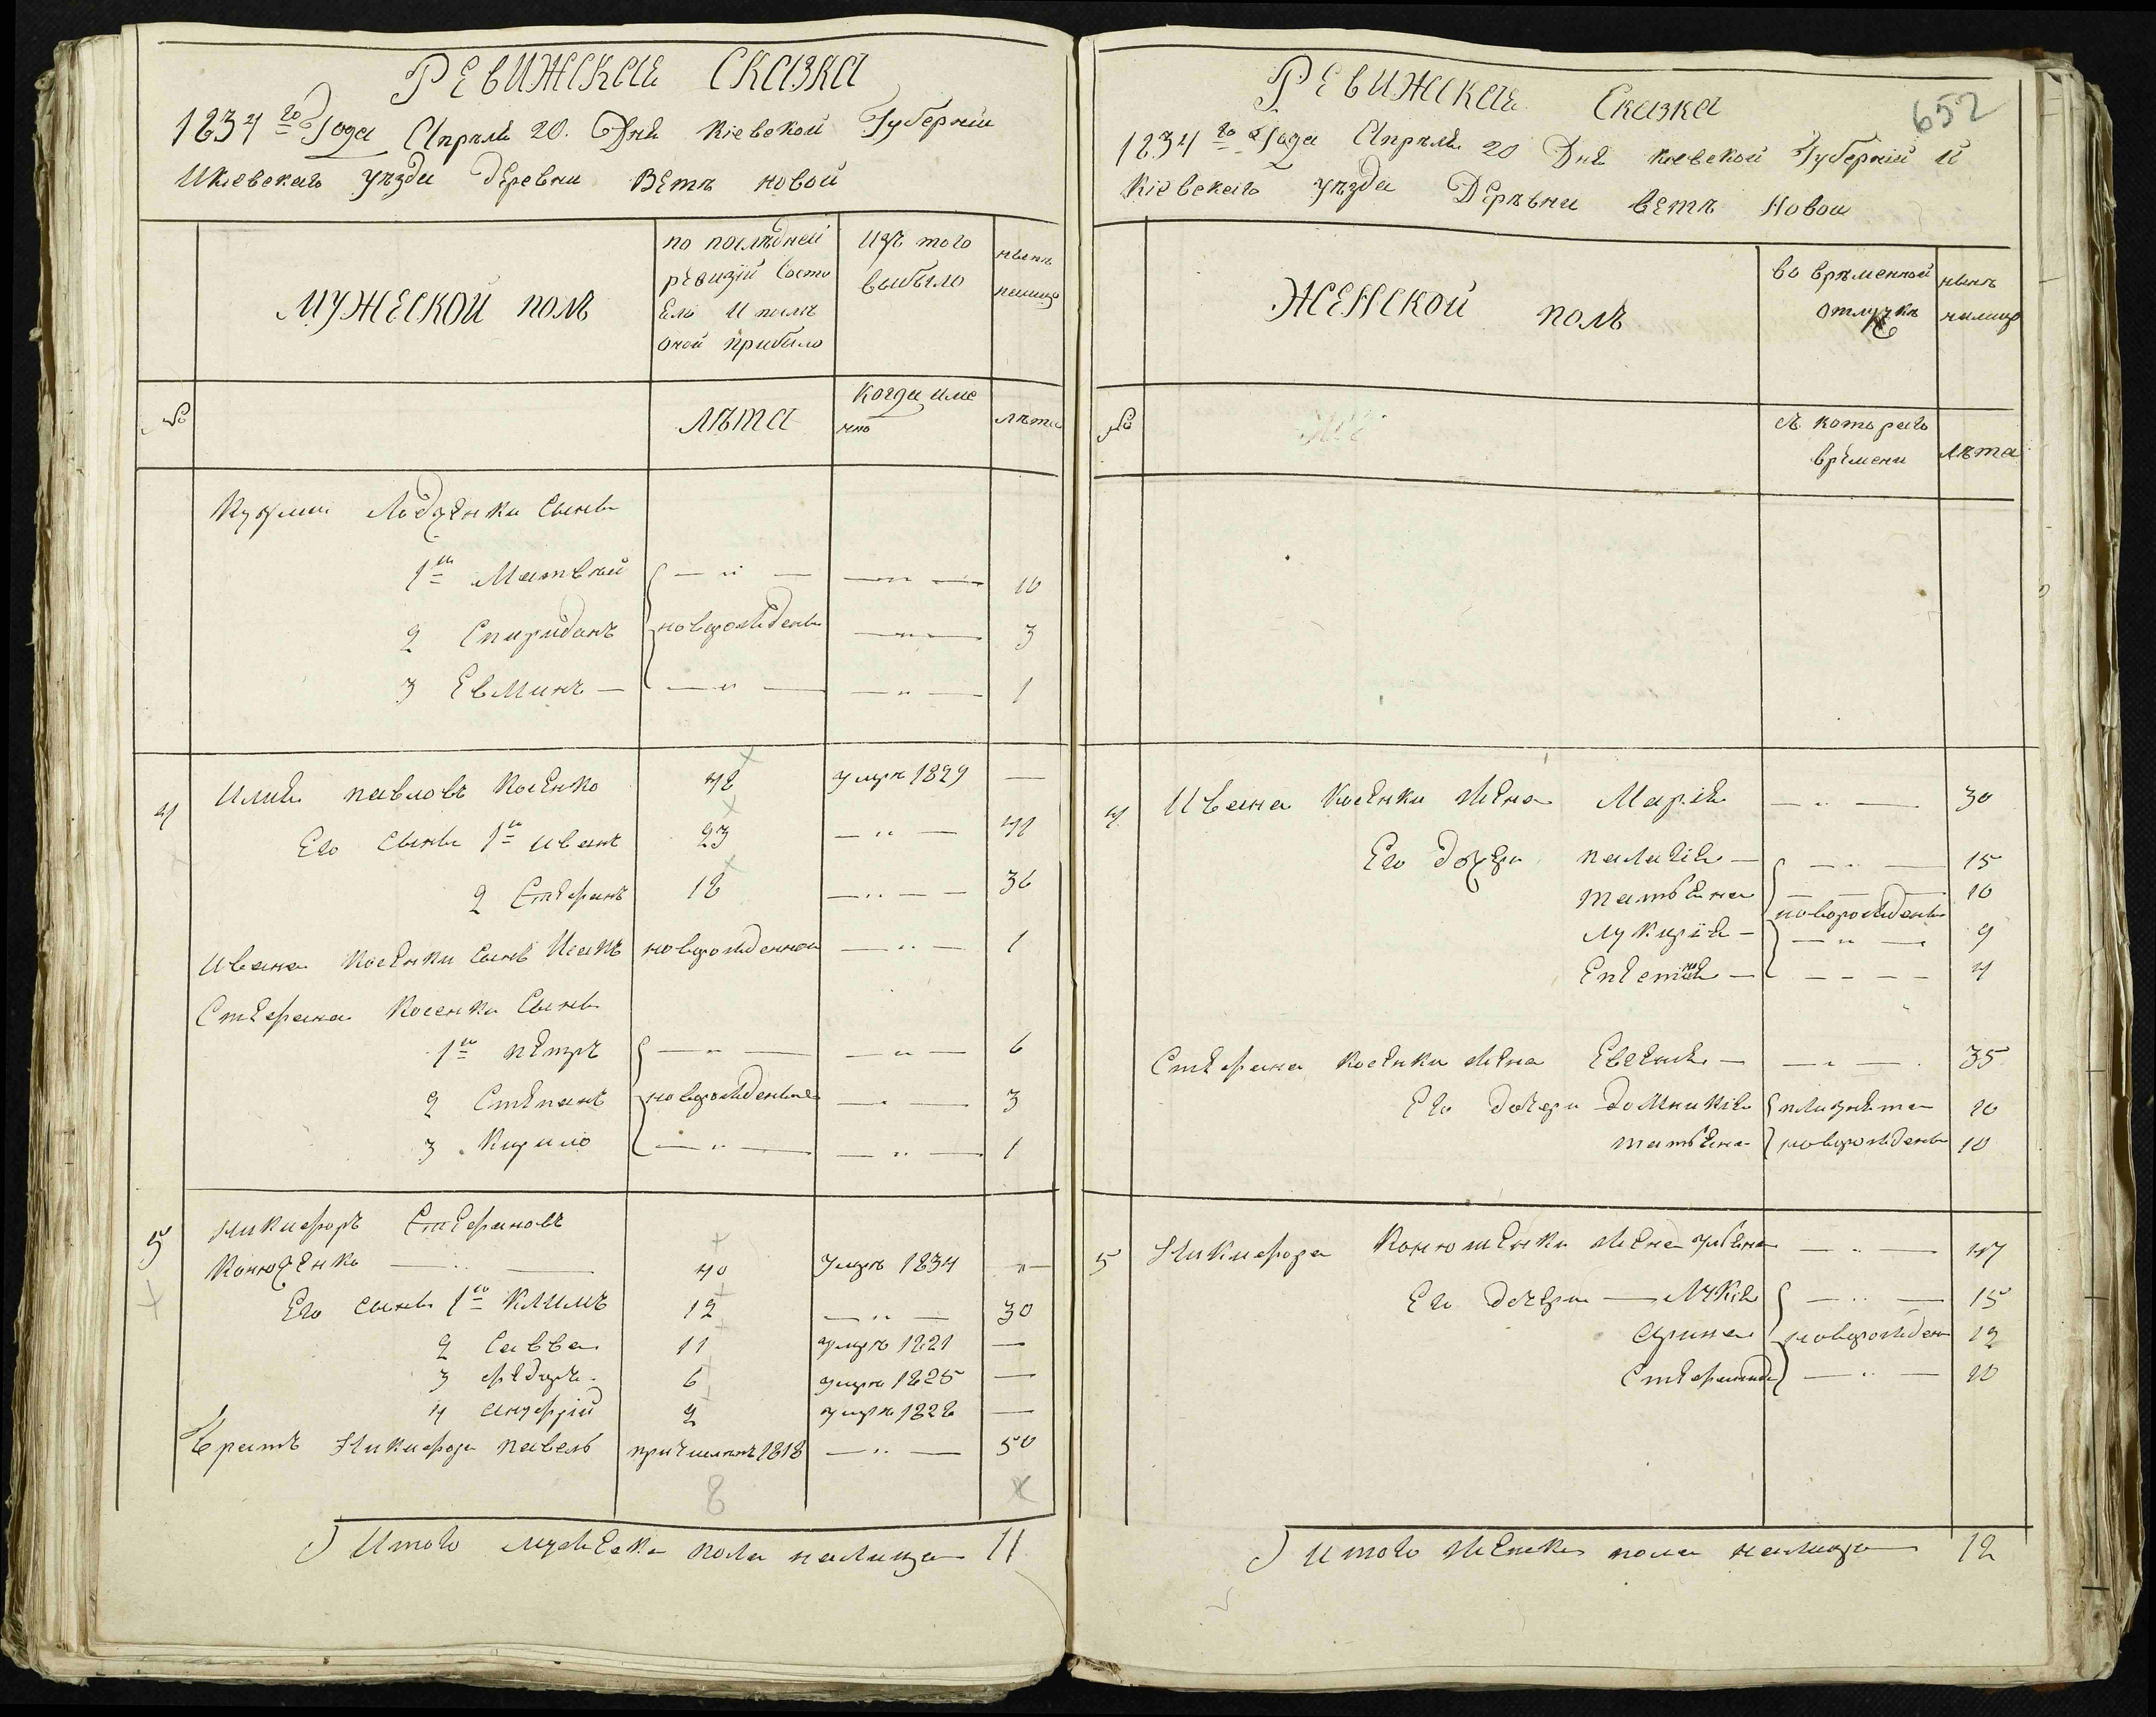 РЕВИЖСКАЯ СКАЗКА
1834го Года Апреля 20. Дня Кіевской Губерніи
И Кіевскаго уезда Деревни Ветъ новой
МУЖЕСКОЙ ПОЛЪ
по последней ревизіи состо
ело и после оной прибыло
Изъ того выбыло
ныне налицо
№
ЛѢТА
Когда име
нно
лѣта
Кузмы сыны
1й Матвей — " — — " — 10
2 Спиридонъ новорожденны — " — 3
3 Евминъ — — " — — " — 1
4 Илия павловъ Косенко 48 умре 1829 —
Его сыны 1й иванъ 23 — " — 41
2 Стефанъ 18 — " — 36
Ивана Косенки сынъ Исакъ новорожденной — " — 1
Стефана Косенки Сыны
1й петръ — " — — " — 6
2 Степанъ новорожденные — " — 3
3 Кирило — " — — " — 1
5 Никифоръ Стефановъ
Конюченко — 40 умре 1834 "
Его сыны 1й Климъ 12 — " — 30
2 Савва 11 умре 1821 —
3 федиръ 6 умре 1825 —
4 андрій 2 умре 1828 —
братъ Никифора павелъ 1818 — " — 50
8
Итого мужеска пола налицо 11
РЕВИЖСКАЯ Сказка
652
1834го Года Апреля 20 Дня киевской Губерніи и
Кіевскаго уезда Деревни ветъ Новой
ЖЕНСКОЙ ПОЛЪ
во временной
отлучке
ныне
налицо
№
съ котораго
времени
Лѣта
4 Ивана Косенки жена Марія — " — 30
Его дочери палагія — — " — 15
татьяна — — 10
новорожденны
лукирія — — " — 9
— — — 4
Стефана косенки жена Евгения — — " — 35
Его дочери домникія 20
татьяна новорожденны 10
5 Никифора Конюшенки жена — " — 47
Его дочери — — " — 15
арина новорожден 12
Стефанида — " — 10
Итого женска пола налицо 12